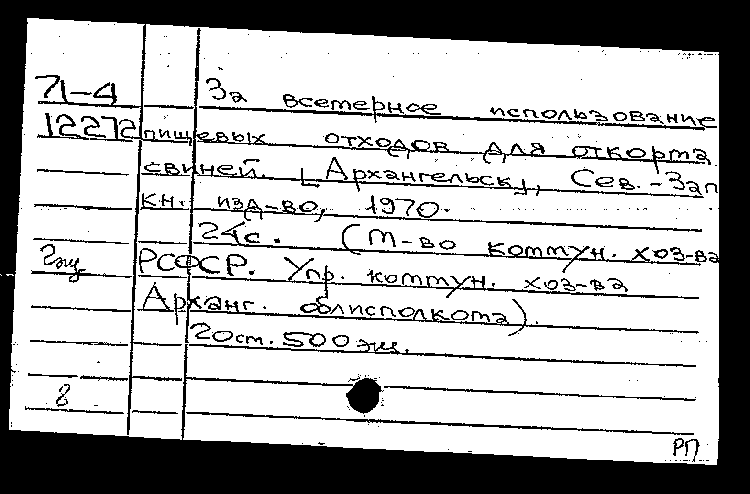 71-4 За всемерное использование
12272 пищевых отходов для откорма
свиней. [Архангельск], Сев.-Зап
кн. изд-во, 1970.
24с. (М-во коммун. хоз-ва
2экз РСФСР. Упр. коммун. хоз-ва
Арханг. облисполкома).
500 экз.
8
РП